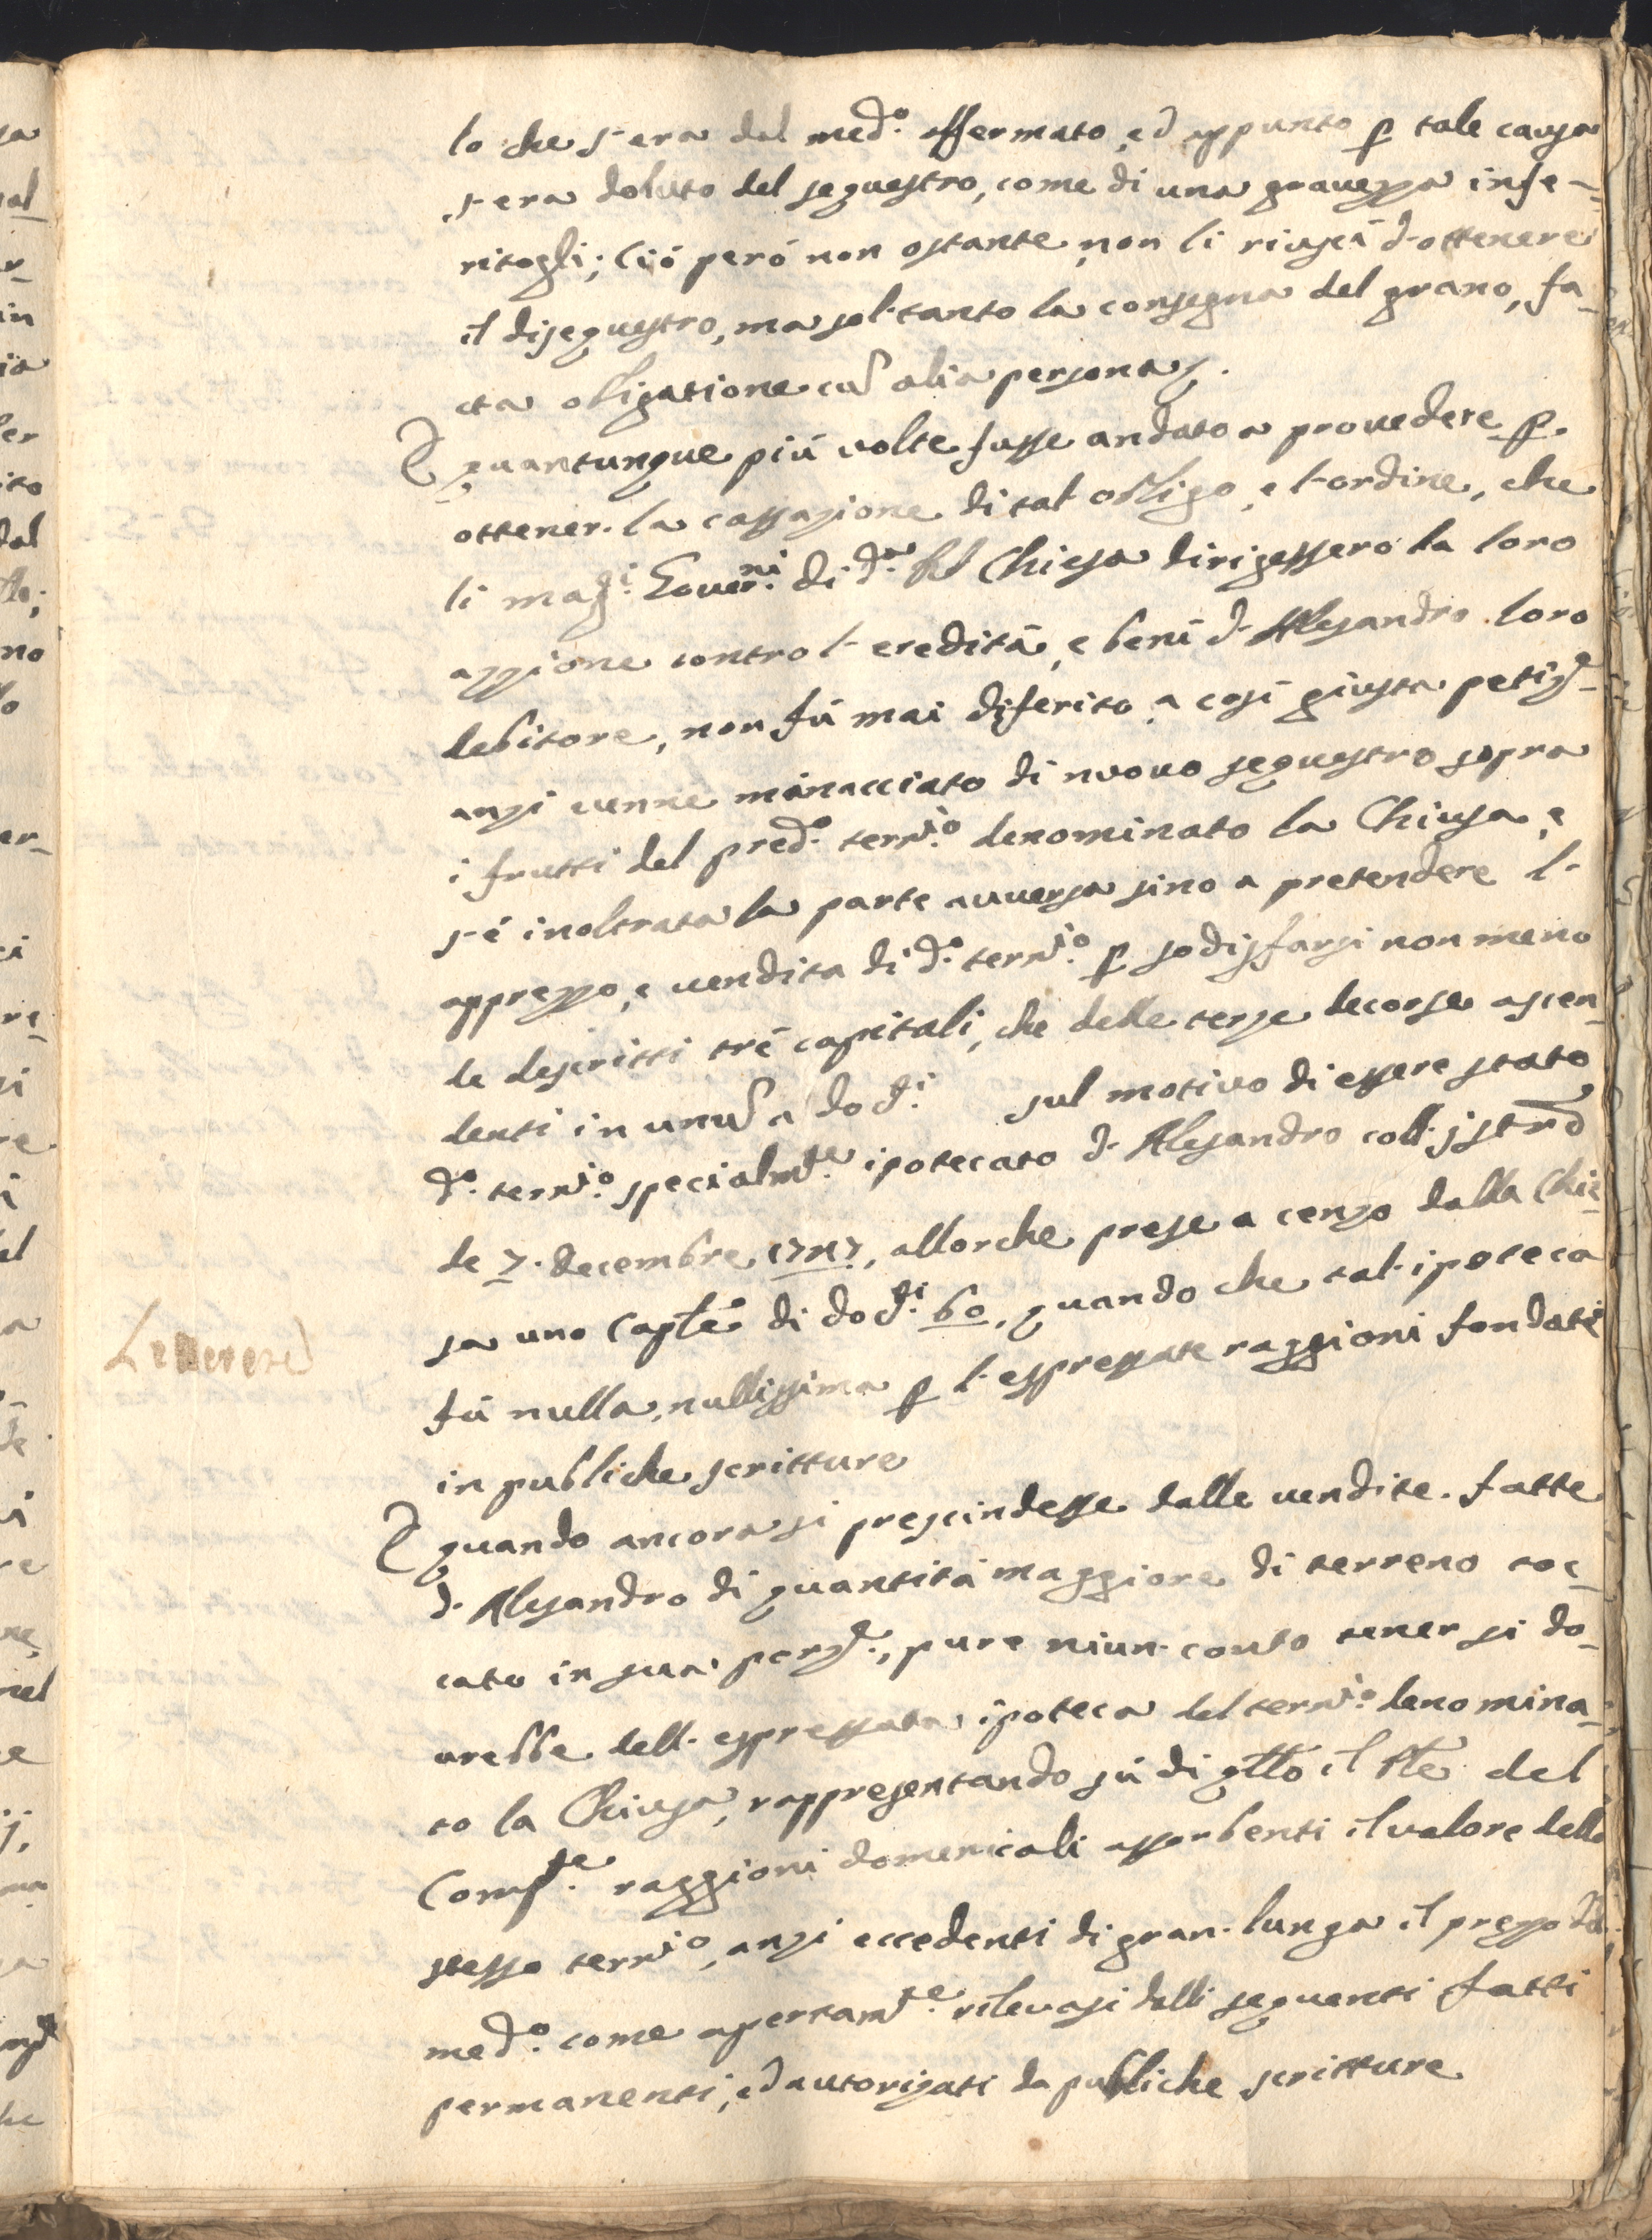 lo che s'era dal med.º affermato, ed appunto p tale causa
s'era doluto del sequestro, come di una gravezza infe-
ritagli; Ció peró non ostante, non li riuscí d'ottenere
il disequestro, ma sol tanto la consegna del grano, fa-
cta obligatione cum alia persona
E quantunque piú volte fusse andato a provedere p.
ottener la cassazione di tal obligo, e l'ordine, che
li mag.i Gover.ni di d.a Chiesa dirigessero la loro
azzione contro l'ereditá, e beni d'Alesandro loro
debitore, non fú mai diferito a cosí giusta petiz.e
anzi venne minacciato di nuovo sequestro sopra
i frutti del pred.º terr.io denominato la Chiusa, e
s'é inoltrata la parte avversa sino a pretendere l'
apprezzo, e vendita di d.º terr.io p sodisfarsi non meno
de descritti tré capitali, che delle terze decorse ascen-
denti in unum a doc.i sul motivo di essere stato
d.º terr.io specialm.te ipotecato d'Alesandro coll'istro
de 7. decembre, allorche prese a censo dalla Chie-
sa uno Caple di doc.i 60, quando che tal'ipoteca
fú nulla, nullissima p l'espressate raggioni fondate
in publiche scritture
E quando ancora si prescindesse dalle vendite fatte
d'Alesandro di quantitá maggiore di terreno toc-
cato in sua porz.e, pure niun conto tener si do-
vrebbe dell'espressata ipoteca del terr.io denomina-
to la Chiusa, rappresentando sú di qllo il del
Comp.te raggioni domenicali assorbenti il valore dello
stesso terr.io, anzi eccedenti di gran lunga il prezzo del
med.º come apertam.te rilevasi dalli seguenti fatti
permanenti, ed autorizati da publiche scritture